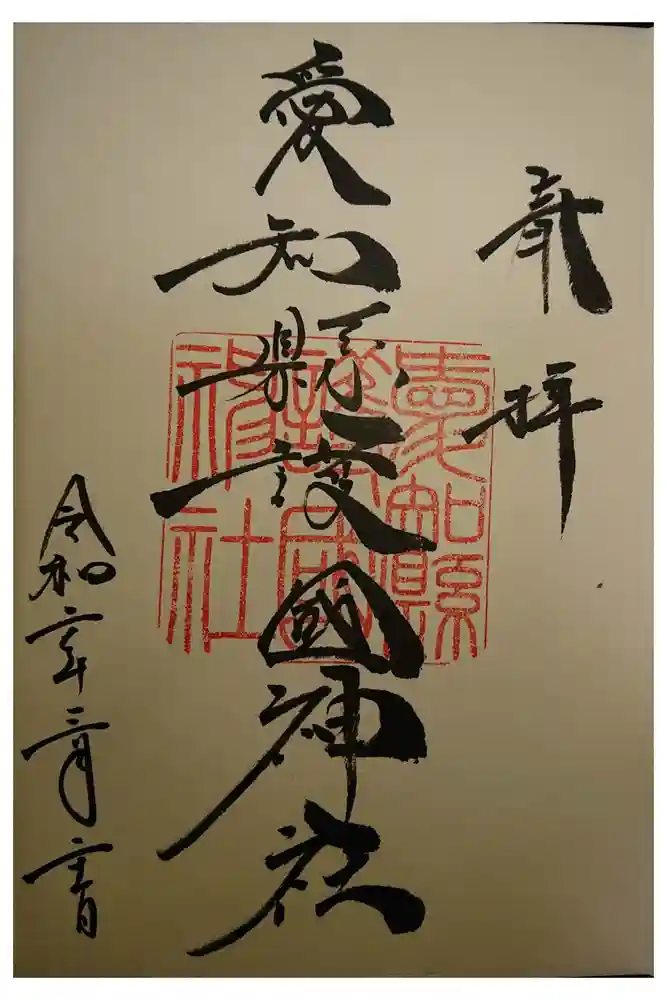 奉拝
愛知縣護國神社
愛知縣
護國
神社
令和二年三月